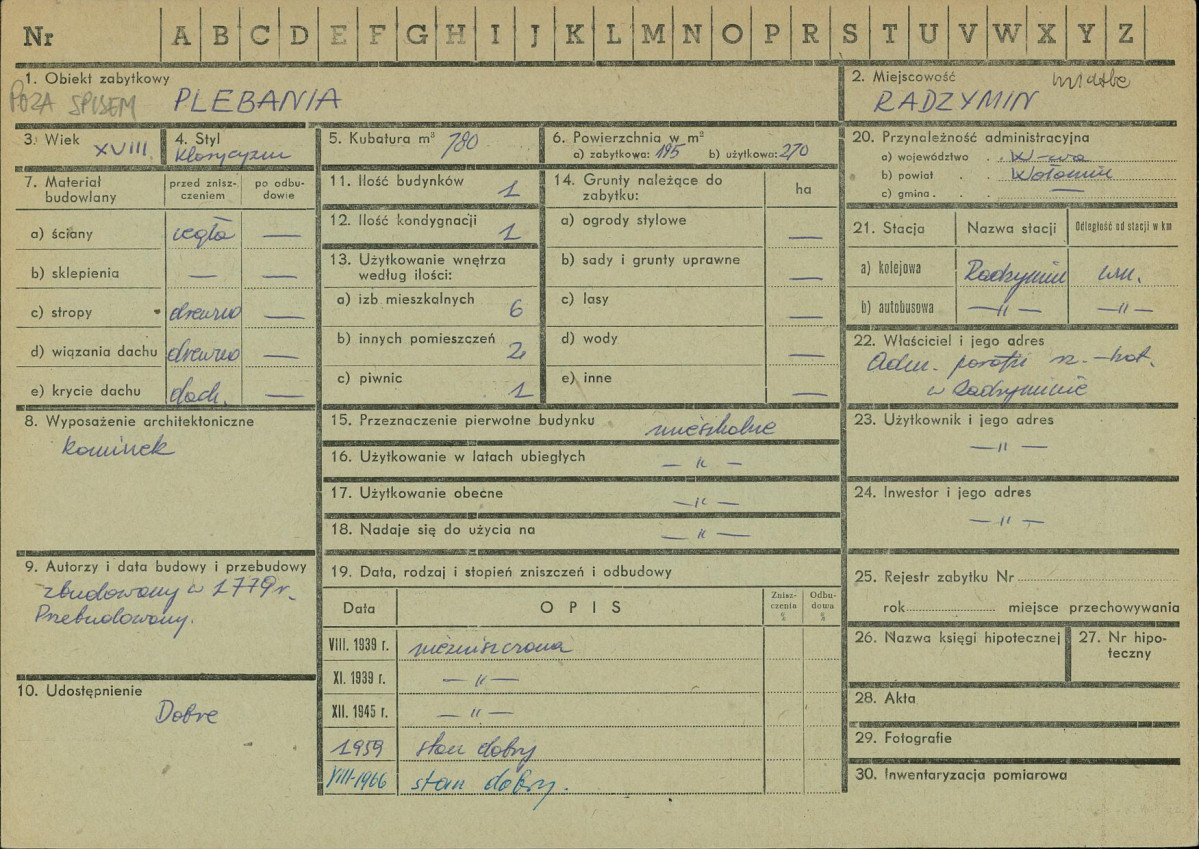 Nr A B C D E F G H I J K L M N O P R S T U V W X Y Z
1. Obiekt zabytkowy
POZA SPISEM PLEBANIA
2. Miejscowość
RADZYMIN
3. Wiek XVIII
4. Styl
Klasycyzm
5. Kubatura m³ 780
6. Powierzchnia w m²
a) zabytkowa: 195 b) użytkowa: 270
20. Przynależność administracyjna
a) województwo . . W-wa
b) powiat . . Wołomin
c) gmina . . —
7. Materiał budowlany
przed zniszczeniem
po odbudowie
a) ściany cegła —
b) sklepienia — —
c) stropy drewno —
d) wiązania dachu drewno —
e) krycie dachu dach. —
11. Ilość budynków 1
12. Ilość kondygnacji 1
13. Użytkowanie wnętrza
według ilości:
a) izb mieszkalnych 6
b) innych pomieszczeń 2
c) piwnic 1
14. Grunty należące do
zabytku:
ha
a) ogrody stylowe —
b) sady i grunty uprawne —
c) lasy —
d) wody —
e) inne —
21. Stacja Nazwa stacji Odległość od stacji w km
a) kolejowa Radzymin
b) autobusowa —"—
22. Właściciel i jego adres
Adm. parafii rz.-kat.
w Radzyminie
8. Wyposażenie architektoniczne
kominek
15. Przeznaczenie pierwotne budynku mieszkalne
16. Użytkowanie w latach ubiegłych —"—
17. Użytkowanie obecne —"—
18. Nadaje się do użycia na —"—
23. Użytkownik i jego adres
—"—
24. Inwestor i jego adres
—"—
9. Autorzy i data budowy i przebudowy
zbudowany w 1779 r.
Przebudowany.
10. Udostępnienie
Dobre
19. Data, rodzaj i stopień zniszczeń i odbudowy
Data OPIS Zniszczenia % Odbudowa %
VIII. 1939 r. niezniszczona
XI. 1939 r. —"—
XII. 1945 r. —"—
1959 stan dobry
VIII-1966 stan dobry.
25. Rejestr zabytku Nr
rok miejsce przechowywania
26. Nazwa księgi hipotecznej
27. Nr hipoteczny
28. Akta
29. Fotografie
30. Inwentaryzacja pomiarowa